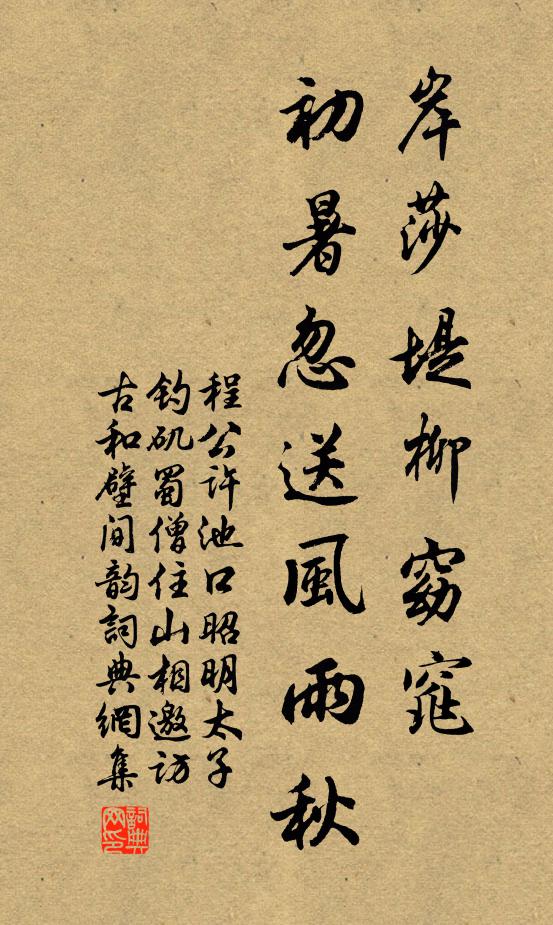 岸莎堤柳窈窕
初暑忽送風雨秋
程公許池口昭明太子
釣矶蜀僧住山相邀訪
古和壁间韵詞典網集
詞典网印